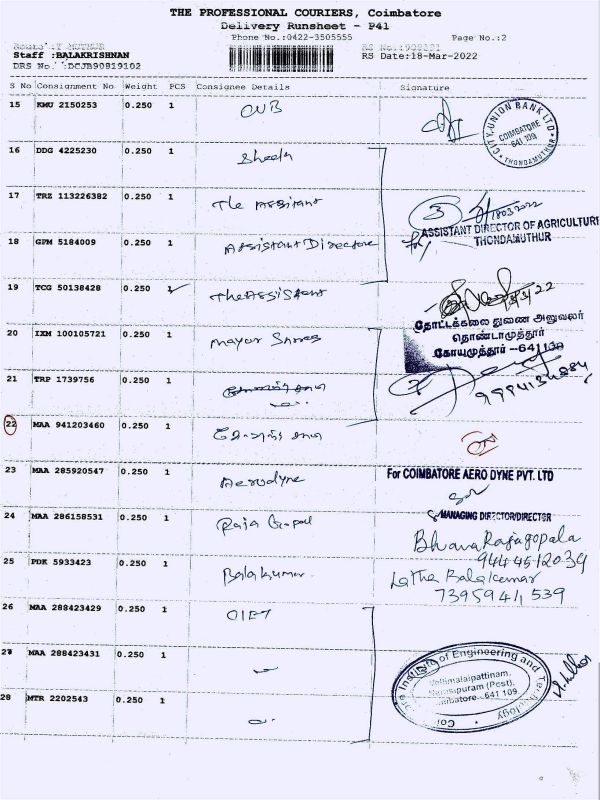 THE PROFESSIONAL COURIERS, Coimbatore
Delivery Runsheet - P41
Phone No.:0422-3505555
Page No.:2
Staff :BALAKRISHNAN
RS Date:18-Mar-2022
DRS No. :DCJB90819102
S No Consignment No Weight PCS Consignee Details Signature
15 KMU 2150253 0.250 1 CUB
CITY UNION BANK LTD.
COIMBATORE
641 109
THONDAMUTHUR
16 DDG 4225230 0.250 1 Sheela
17 TRZ 113226382 0.250 1 The Assistant
3
ASSISTANT DIRECTOR OF AGRICULTURE
THONDAMUTHUR
18 GPM 5184009 0.250 1 Assistant Director
19 TCG 50138428 0.250 The Assistant
தோட்டக்கலை துணை அலுவலர்
தொண்டாமுத்தூர்
கோயமுத்தூர் –641 109
20 IXM 100105721 0.250 1 Mayur
21 TRP 1739756 0.250 1
22 MAA 941203460 0.250 1
23 MAA 285920547 0.250 1 Aerodyne
For COIMBATORE AERO DYNE PVT. LTD
MANAGING DIRECTOR/DIRECTOR
24 MAA 286158531 0.250 1 Raja Gopal
Bhava Rajagopala
9444512039
25 PDK 5933423 0.250 1 Balakumar
Latha Balakumar
7395941539
26 MAA 288423429 0.250 1 CIET
27 MAA 288423431 0.250 1
Institute of Engineering and Technology
Vellimalaipattinam,
Narasipuram (Post),
Coimbatore - 641 109
28 MTR 2202543 0.250 1